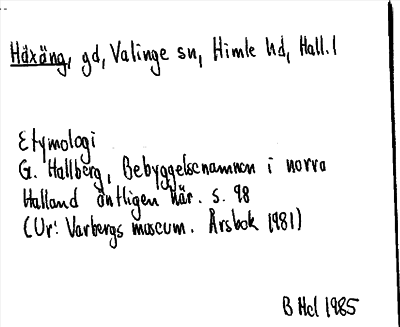 Häxäng, gd, Valinge sn, Himle hd, Hall. l
Etymologi
G. Hallberg, Bebyggelsenamnen i norra
Halland äntligen här. s. 98
(Ur: Varbergs museum. Årsbok 1981)
B Hel 1985